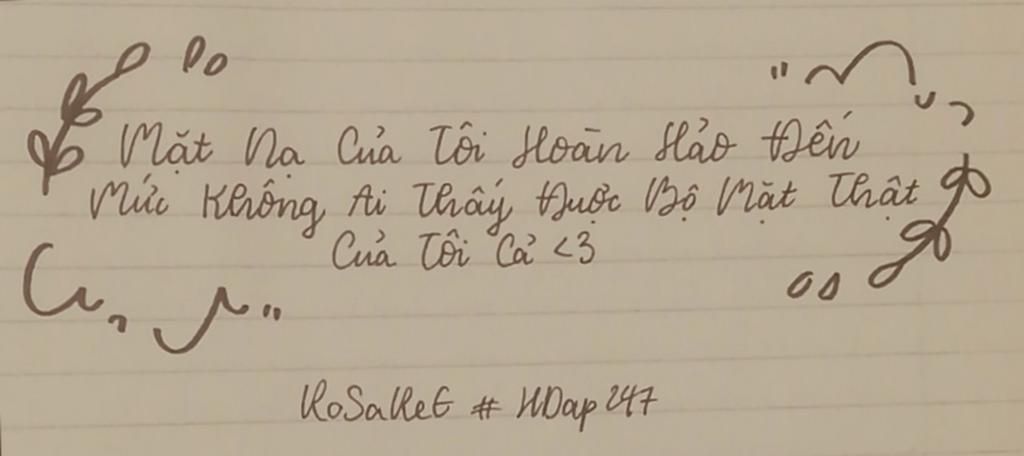 Mặt Nạ Của Tôi Hoàn Hảo Đến
Mức Không Ai Thấy Được Bộ Mặt Thật
Của Tôi Cả <3
RoSaReE # HDap247